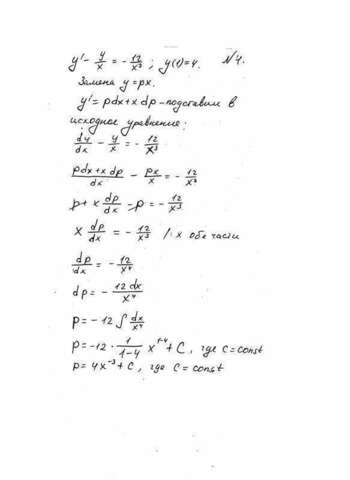 y' - y/x = - 12/x³ ; y(1)=4. №4.
Замена y=px.
y'= pdx+xdp -подставим в
исходное уравнение:
dy/dx - y/x = - 12/x³
(pdx+xdp)/dx - px/x = - 12/x³
p+ x dp/dx - p = - 12/x³
x dp/dx = - 12/x³ /:x обе части
dp/dx = - 12/x⁴
dp = - 12dx/x⁴
p = - 12 ∫ dx/x⁴
p = -12 · 1/(1-4) x¹⁻⁴ + C, где C = const
p = 4x⁻³ + C, где C = const